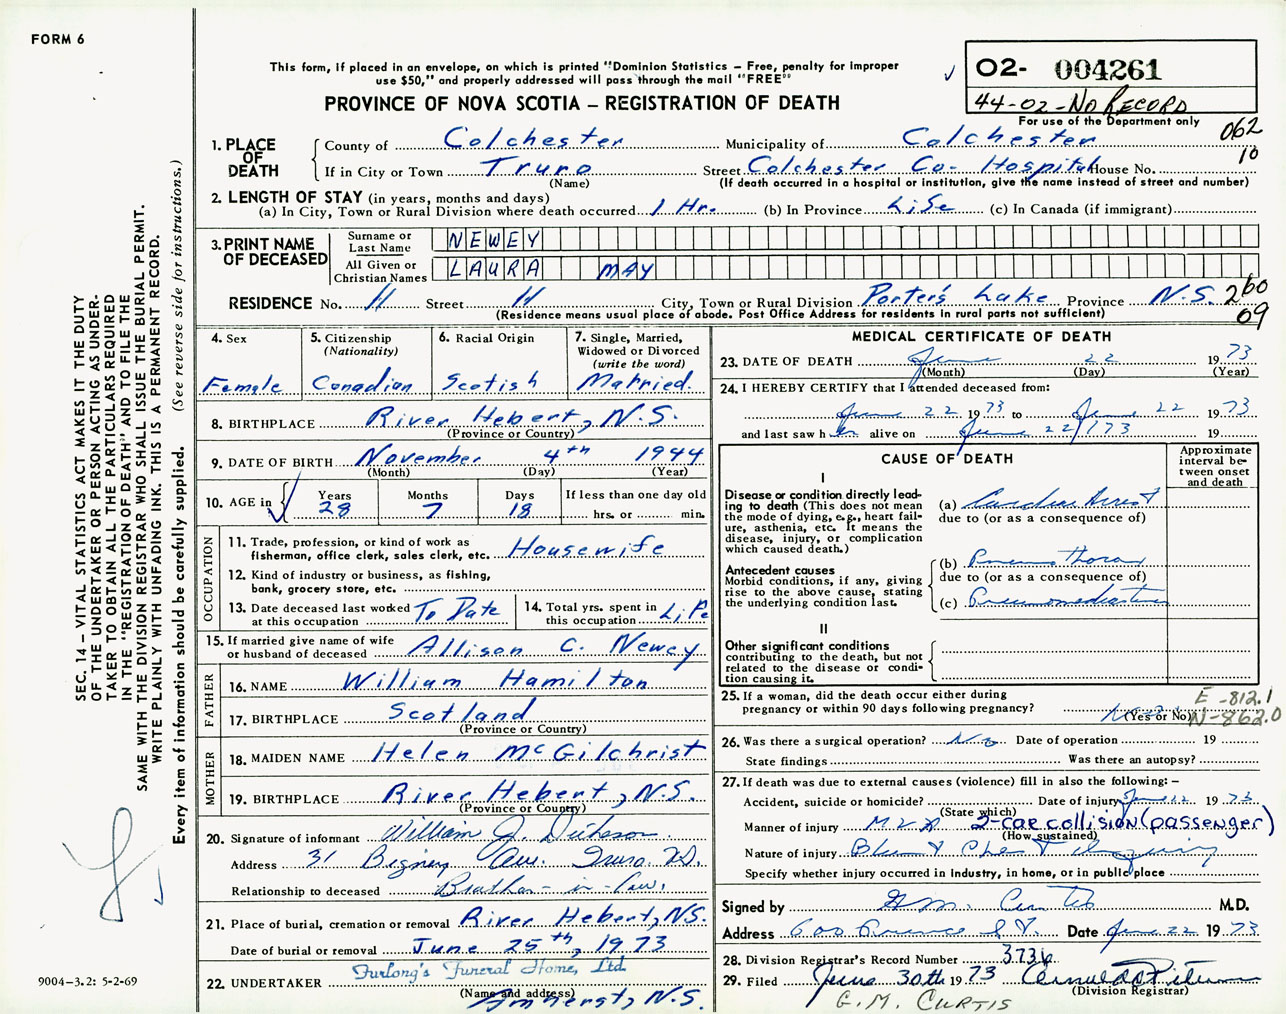 FORM 6
This form, if placed in an envelope, on which is printed "Dominion Statistics – Free, penalty for improper
use $50," and properly addressed will pass through the mail "FREE"
PROVINCE OF NOVA SCOTIA – REGISTRATION OF DEATH
02- 004261
44-02-NO RECORD
For use of the Department only
062
10
1. PLACE OF DEATH
County of Colchester Municipality of Colchester
If in City or Town Truro Street Colchester Co- Hospital House No.
(Name) (If death occurred in a hospital or institution, give the name instead of street and number)
2. LENGTH OF STAY (in years, months and days)
(a) In City, Town or Rural Division where death occurred 1 Hr. (b) In Province Life (c) In Canada (if immigrant)
3. PRINT NAME OF DECEASED
Surname or Last Name NEWEY
All Given or Christian Names LAURA MAY
RESIDENCE No. 11 Street 11 City, Town or Rural Division Porter's Lake Province N.S. 260
(Residence means usual place of abode. Post Office Address for residents in rural parts not sufficient) 09
4. Sex
Female
5. Citizenship
(Nationality)
Canadian
6. Racial Origin
Scotish
7. Single, Married,
Widowed or Divorced
(write the word)
Married.
8. BIRTHPLACE River Hebert, N.S.
(Province or Country)
9. DATE OF BIRTH November 4th 1944
(Month) (Day) (Year)
10. AGE in Years 28 Months 7 Days 18 If less than one day old
hrs. or min.
OCCUPATION
11. Trade, profession, or kind of work as
fisherman, office clerk, sales clerk, etc. Housewife
12. Kind of industry or business, as fishing,
bank, grocery store, etc.
13. Date deceased last worked
at this occupation To Date
14. Total yrs. spent in
this occupation Life
15. If married give name of wife
or husband of deceased Allison C. Newey
FATHER
16. NAME William Hamilton
17. BIRTHPLACE Scotland
(Province or Country)
MOTHER
18. MAIDEN NAME Helen McGilchrist
19. BIRTHPLACE River Hebert, N.S.
(Province or Country)
20. Signature of informant William J. Dickeson
Address 31 Ave. Truro N.S.
Relationship to deceased Brother-in-law.
21. Place of burial, cremation or removal River Hebert, N.S.
Date of burial or removal June 25th, 1973
22. UNDERTAKER Furlong's Funeral Home, Ltd.
(Name and address)
Amherst, N.S.
MEDICAL CERTIFICATE OF DEATH
23. DATE OF DEATH June 22 1973
(Month) (Day) (Year)
24. I HEREBY CERTIFY that I attended deceased from:
June 22 1973 to June 22 1973
and last saw her alive on June 22/173 19
CAUSE OF DEATH
Approximate
interval be-
tween onset
and death
I
Disease or condition directly lead-
ing to death (This does not mean
the mode of dying, e.g., heart fail-
ure, asthenia, etc. It means the
disease, injury, or complication
which caused death.)
(a) Cardiac Arrest
due to (or as a consequence of)
Antecedent causes
Morbid conditions, if any, giving
rise to the above cause, stating
the underlying condition last.
(b) Pneumo thorax
due to (or as a consequence of)
(c) Pneumomediastinum
II
Other significant conditions
contributing to the death, but not
related to the disease or condi-
tion causing it.
25. If a woman, did the death occur either during
pregnancy or within 90 days following pregnancy?
(Yes or No)
E-812.1
N-862.0
26. Was there a surgical operation? No Date of operation 19
State findings Was there an autopsy?
27. If death was due to external causes (violence) fill in also the following: –
Accident, suicide or homicide? Date of injury June 22 1973
(State which)
Manner of injury MVA 2-car collision (passenger)
(How sustained)
Nature of injury Blunt Chest Injury
Specify whether injury occurred in industry, in home, or in public place
Signed by G.M. Curtis M.D.
Address Date June 22 1973
28. Division Registrar's Record Number 3736
29. Filed June 30th 1973
(Division Registrar)
G.M. CURTIS
SEC. 14 – VITAL STATISTICS ACT MAKES IT THE DUTY
OF THE UNDERTAKER OR PERSON ACTING AS UNDER-
TAKER TO OBTAIN ALL THE PARTICULARS REQUIRED
IN THE "REGISTRATION OF DEATH" AND TO FILE THE
SAME WITH THE DIVISION REGISTRAR WHO SHALL ISSUE THE BURIAL PERMIT.
WRITE PLAINLY WITH UNFADING INK. THIS IS A PERMANENT RECORD.
Every item of information should be carefully supplied. (See reverse side for instructions.)
9004-3.2: 5-2-69